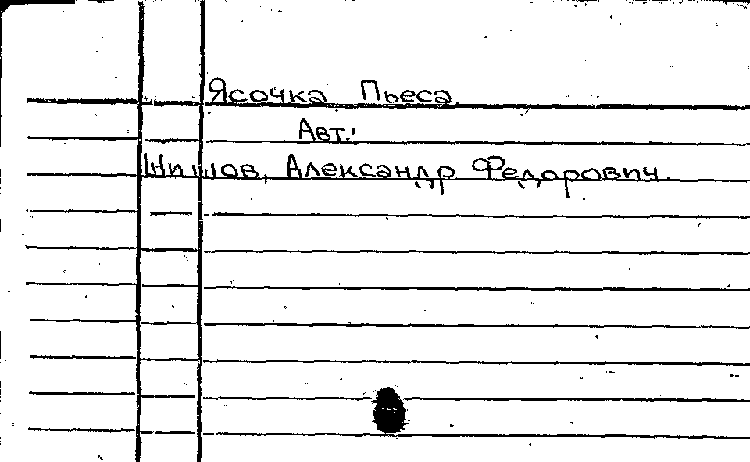 Ясочка Пьеса.
Авт.:
Александр Федорович.